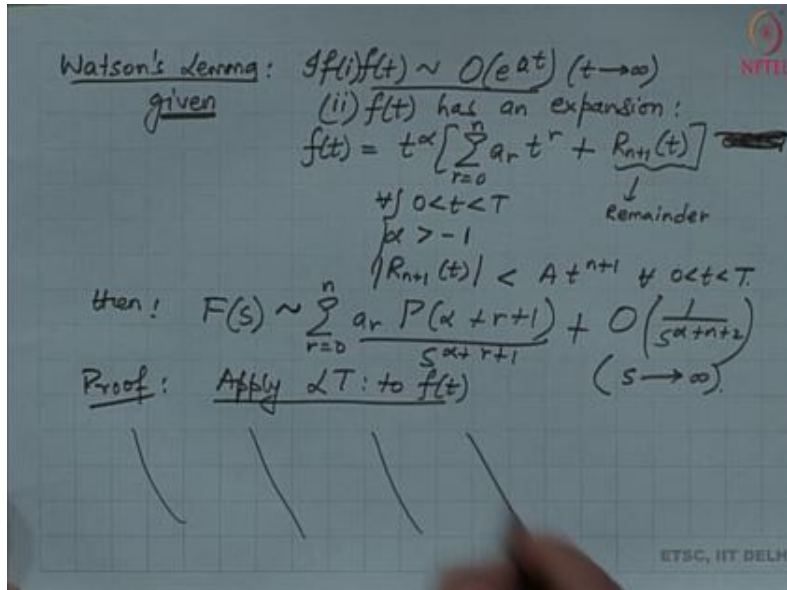 Watson's Lemma: If (i) f(t) ~ O(e^{at}) (t→∞)
given (ii) f(t) has an expansion:
f(t) = t^α [∑_{r=0}^{n} a_r t^r + R_{n+1}(t)]
∀ 0<t<T
Remainder
α > -1
|R_{n+1}(t)| < A t^{n+1} ∀ 0<t<T.
then: F(s) ~ ∑_{r=0}^{n} a_r Γ(α+r+1) / s^{α+r+1} + O(1/s^{α+n+2})
(s→∞).
Proof: Apply LT: to f(t)
NPTEL
ETSC, IIT DELH